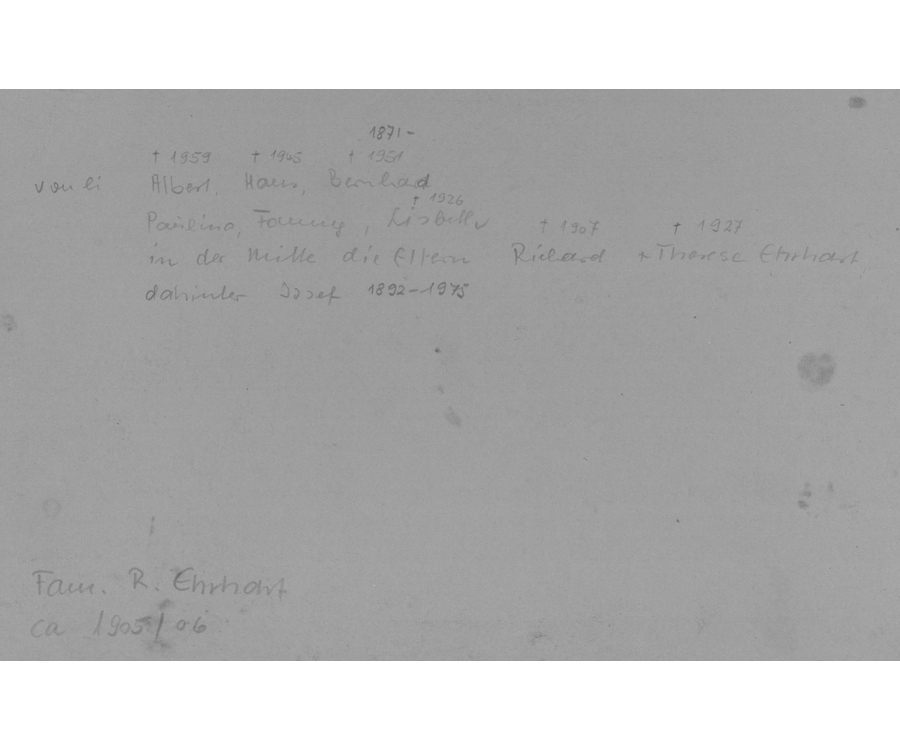 1871-
† 1959 † 1905 † 1951
von li Albert, Hans, Bernhard
† 1926
Paulina, Fanny, Lisbeth † 1907 † 1927
in der Mitte die Eltern Richard + Therese Ehrhart
dahinter Josef 1892-1975
Fam. R. Ehrhart
ca 1905/06